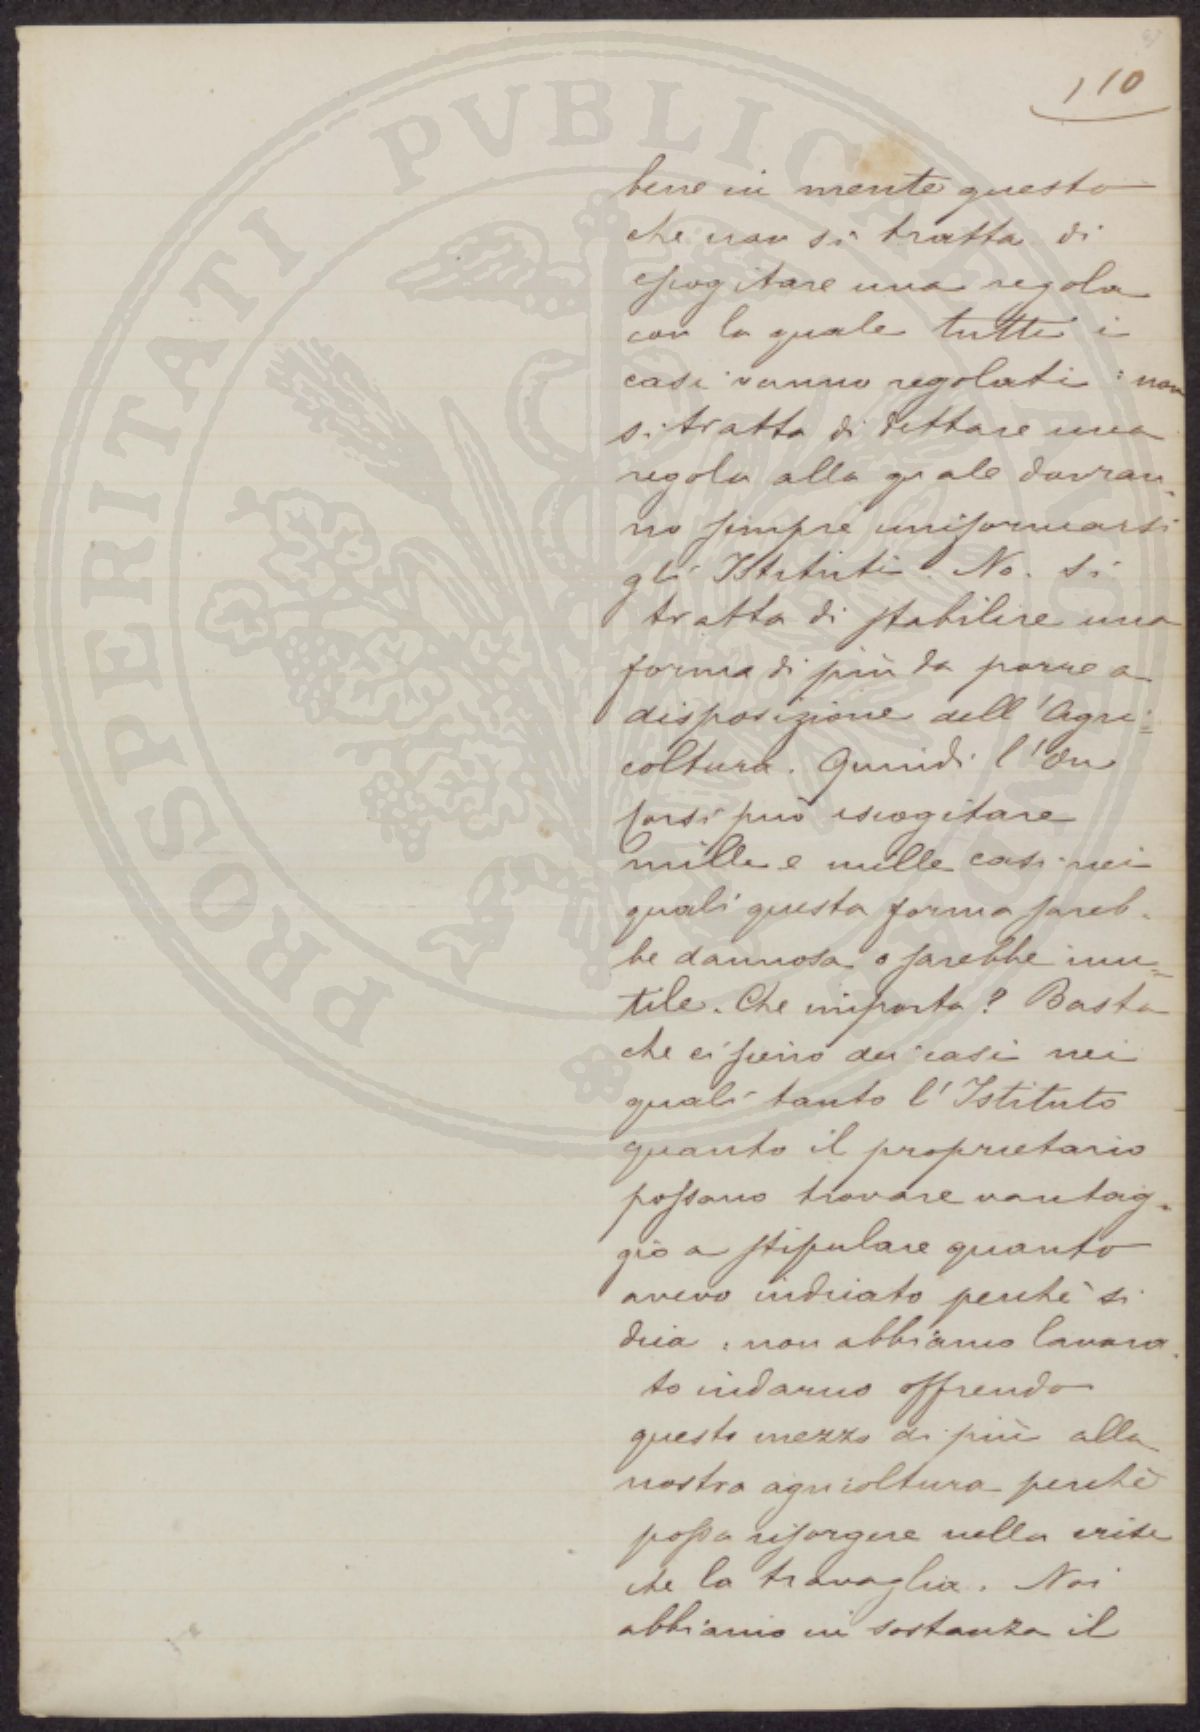 110
bene in mente questo
che non si tratta di
escogitare una regola
con la quale tutti i
casi vanno regolati: non
si tratta di dettare una
regola alla quale dovran-
no sempre uniformarsi
gli Istituti. No. Si
tratta di stabilire una
forma di più da porre a
disposizione dell'Agri=
coltura. Quindi l'On
forsi può escogitare
mille e mille casi nei
quali questa forma sareb-
be dannosa o sarebbe inu=
tile. Che importa? Basta
che ci siano dei casi nei
quali tanto l'Istituto
quanto il proprietario
possano trovare vantag-
gio a stipulare quanto
avevo indicato perchè si
dica: non abbiamo lavora-
to indarno offrendo
questo mezzo di più alla
nostra agricoltura perchè
possa risorgere nella crise
che la travaglia. Noi
abbiamo in sostanza il
PROSPERITATI PVBLICAE